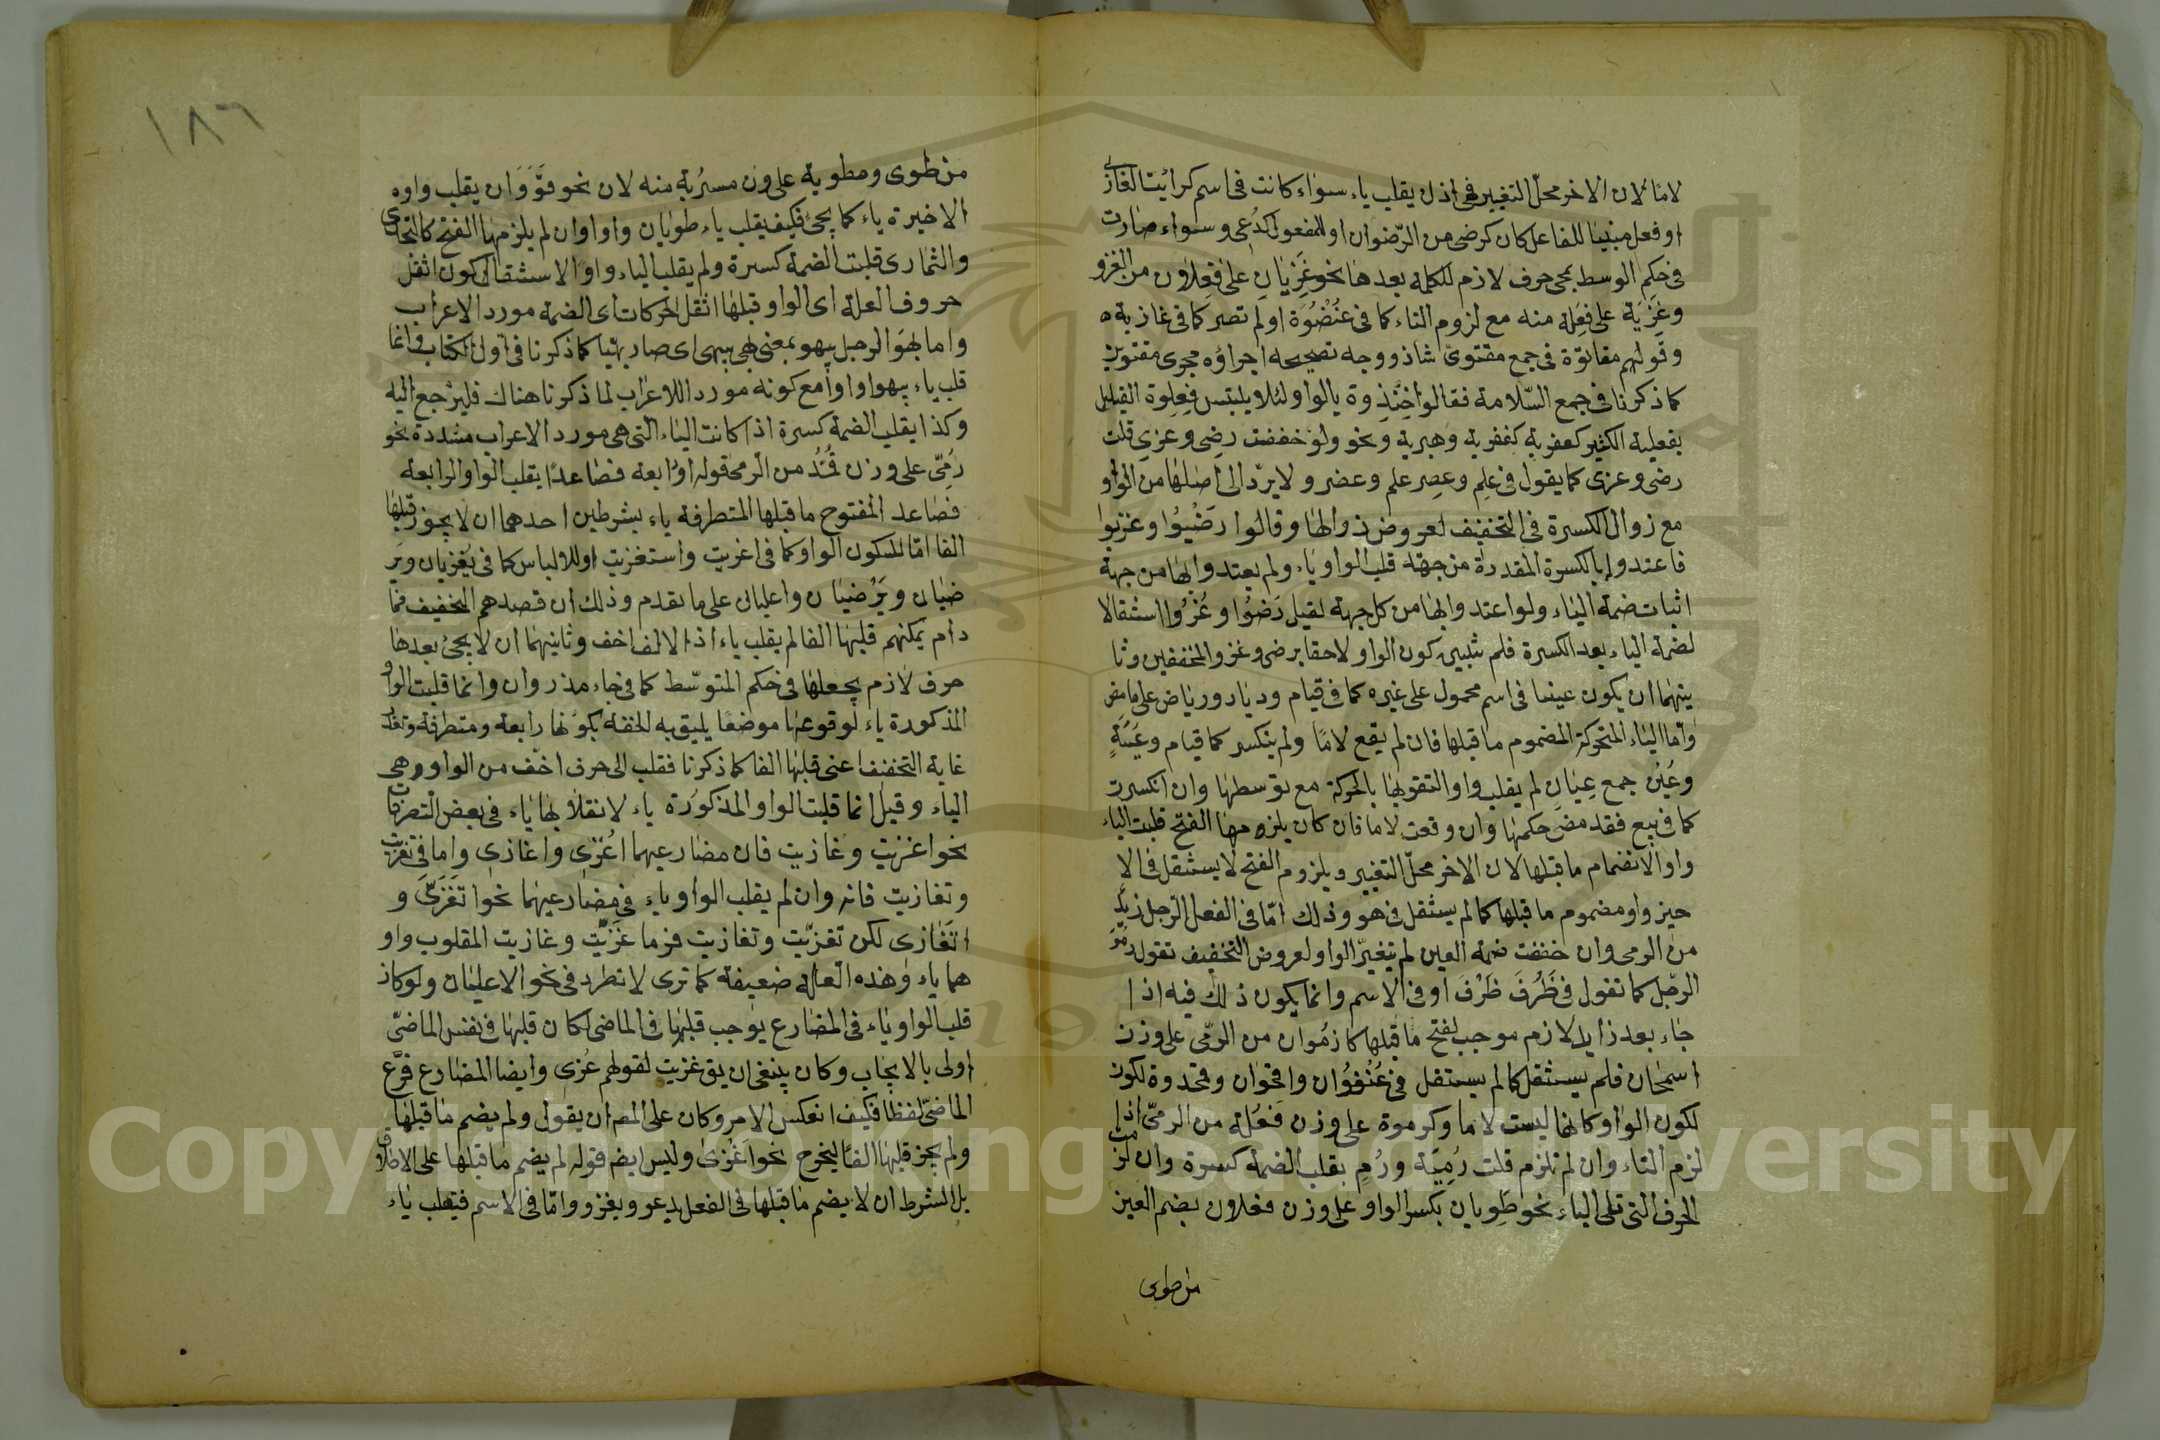 لامًا لان الاخر محلّ التغيير فهى اذن يقلب ياء سواء كانت فى اسم كرايت الغازى
او فعل مبنيا للفاعل كان كرضى من الرّضوان او للمفعول كدُعى وسواء صارت
فى حكم الوسط بمجى حرف لازم للكلمة بعدها نحو غَزِيَانِ على فَعِلان من الغزو
وغَزِيَة على فَعِلة منه مع لزوم التاء كما فى عَنْصُوَة او لم تصر كما فى غازية
وقولهم مقاتوة فى جمع مقتوى شاذ ووجه تصحيحه اجراؤه مجرى مقتوين
كما ذكرنا فى جمع السّلامة فقالوا خِنْذِوة بالواو لئلا يلتبس فِعِلوة القليل
بفعلية الكثير كعفرية كنفرية وهبرية ونحو ولو خففت رضِى وعزِى قلت
رضى وعزى كما يقول فى علِم وعصِر علم وعصر ولا يردّ الى اصلها من الواو
مع زوال الكسرة فى التخفيف لعروض زوالها وقالوا رَضْيُوا وغزيوا
فاعتدوا بالكسرة المقدرة من جهة قلب الواو ياء ولم يعتدوا بها من جهة
اثبات ضمة الياء ولو اعتدوا بها من كل جهة لقيل رَضُوا وغُزُوا استثقالا
لضمة الياء بعد الكسرة فلم كون الواو لاحقا برضى وغزو المخففين وثا
نيهما ان يكون عينا فى اسم محمول على غيره كما فى قيام وديار ورياض على ما مرّ
وامّا الياء المتحركة المضموم ما قبلها فان لم يقع لامًا ولم ينكسر كما قيام وعُيَبَةٍ
وعُيُن جمع عِيَانٍ لم يقلب واو التقويها بالحركة مع توسطها وان انكسرت
كما فى بيع فقد مضى حكمها وان وقعت لاما فان كان يلزمها الفتح قلبت الياء
واوا لانضمام ما قبلها لان الاخر محلّ التغيير ويلزوم الفتح لا يستثقل فى الا
خيز واو مضموم ما قبلها كما لم يستثقل فى هو وذلك امّا فى الفعل الرّجل زيد
من الرمى وان خففت ضمة العين لم تغيّر الواو لعروض التخفيف تقول رَمْوَ
الرجل كما تقول فى ظَرُفَ ظَرْفَ او فى الاسم وانما يكون ذلك فيه اذا
جاء بعد زايد لازم موجب لفتح ما قبلها كا زمُوان من الرمّى على وزن
اسمحان فلم يستثقل كما لم يستثقل فى عُنفُوان واقحوان وقمحدوة لكون
لكون الواو كانها ليست لاما وكرموة على وزن فَعُلة من الرمىّ اذا
لزم التاء وان لم تلزم قلت رُمِيَة ورُمِ بقلب الضمة كسرة وان لزمت
الحرف التى تلى الياء نحو طَوِيان بكسر الواو على وزن فعلان بضم العين
من طوى
١٨٦
من طوى ومطوية على وزن مسرُبة منه لان نحو قوَوَان يقلب واوه
الاخيرة ياء كما يجئ فكيف يقلب ياء طويان واوا وان لم يلزمها الفتح كالتجارى
والتمارى قلبت الضمة كسرة ولم يقلب الياء واوًا لاستثقال كون اثقل
حروف العلة اى الواو قبلها اثقل الحركات اى الضمة مورد الاعراب
واما بهوَ الرجل يبهو بمعنى بهى يبهى اى صار بهيّا كما ذكرنا فى اول الكتاب فانما
قلب ياء يبهو واوًا مع كونه مورد اللاعراب لما ذكرنا هناك فليرْجع اليه
وكذا يقلب الضمة كسرة اذا كانت الياء التى هى مورد الاعراب مشددة نحو
رُمِىّ على وزن قُمُدّ من الرمى قوله او رابعة فصاعدًا يقلب الواو الرابعة
فصاعد المفتوح ما قبلها المتطرفة ياء بشرطين احدهما ان لا يجوز قبلها
الفا امّا للسكون الواو كما فى اغزيت واستغزيت او للالباس كما فى يُغزيان وير
ضيان ويَرْضيان واعليان على ما تقدم وذلك ان قصدهم التخفيف فما
دام يمكنهم قلبها الفا لم يقلب ياء اذا الالف اخف وثانيهما ان لا يجئ بعدها
حرف لازم يجعلها فى حكم المتوسّط كما فى جاء مذروان وانما قلبت الواو
المذكورة ياء لوقوعها موضعًا يليق به الخفة لكونها رابعة ومتطرفة وتعذر
غاية التخفيف اعنى قلبها الفا كما ذكرنا فقلب الى حرف اخف من الواو وهى
الياء وقيل انما قلبت الواو المذكورة ياء لانقلابها ياء فى بعض التصرفات
نحو اغزيت وغازيت فان مضارعيهما اُغْزى واغازى واما فى تغزيت
وتغازيت فانه وان لم يقلب الواو ياء فى مضارعيهما نحو اتَغَزّى و
اتَغازى لكن تغزّيت وتغازيت فرعا غَزّيت وغازيت المقلوب واو
هما ياء وهذه العلة ضعيفة كما ترى لا تطرد فى نحو الاعليان ولو كان
قلب الواو ياء فى المضارع يوجب قلبها فى الماضى لكان قلبها فى نفس الماضىّ
اولى بالايجاب وكان ينبغى ان يق غزيت لقولهم غُزى وايضا المضارع فرّع
الماضىّ لفظا فكيف انعكس الامر وكان على المص ان يقول ولم يضم ما قبلها
ولم يجز قلبها الفا ليخرج نحو اَغْزى وليس ايضم قوله لم يضم ما قبلها على الاطلاق
بل الشرط ان لا يضم ما قبلها فى الفعل يدعو ويغزو وامّا فى الاسم فيقلب ياء
Copyright © King Saud University